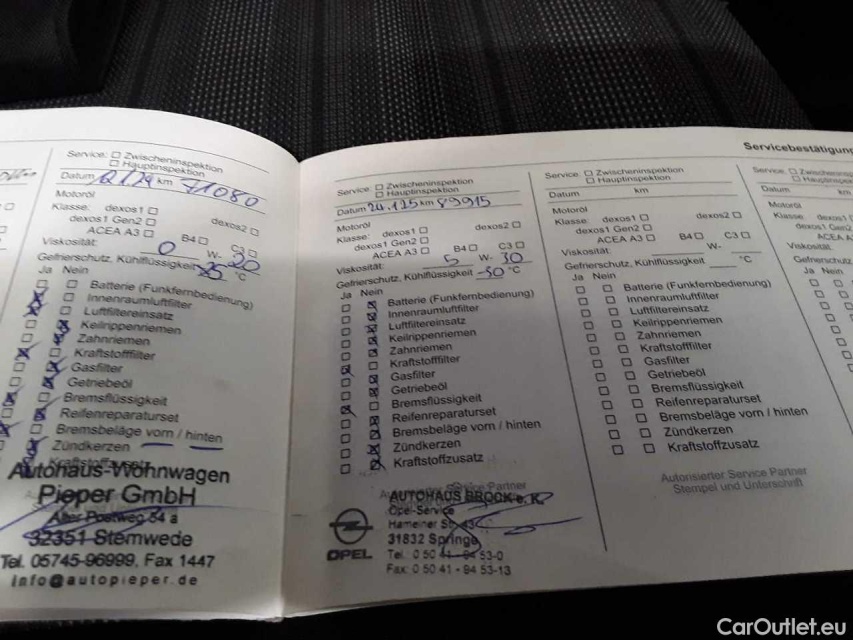 Servicebestätigung
Service: Zwischeninspektion
Hauptinspektion
Datum km 71080
Motoröl
Klasse: dexos1 dexos2
dexos1 Gen2
ACEA A3 B4 C3
Viskosität: 0 W- 20
Gefrierschutz, Kühlflüssigkeit °C
Ja Nein
Batterie (Funkfernbedienung)
Innenraumluftfilter
Luftfiltereinsatz
Keilrippenriemen
Zahnriemen
Kraftstofffilter
Gasfilter
Getriebeöl
Bremsflüssigkeit
Reifenreparaturset
Bremsbeläge vorn / hinten
Zündkerzen
Autohaus-Wohnwagen
Pieper GmbH
Alter Postweg 54 a
32351 Stemwede
Tel. 05745-96999, Fax 1447
info@autopieper.de
Service: Zwischeninspektion
Hauptinspektion
Datum km 89915
Motoröl
Klasse: dexos1 dexos2
dexos1 Gen2
ACEA A3 B4 C3
Viskosität: 5 W- 30
Gefrierschutz, Kühlflüssigkeit -30 °C
Ja Nein
Batterie (Funkfernbedienung)
Innenraumluftfilter
Luftfiltereinsatz
Keilrippenriemen
Zahnriemen
Kraftstofffilter
Gasfilter
Getriebeöl
Bremsflüssigkeit
Reifenreparaturset
Bremsbeläge vorn / hinten
Zündkerzen
Kraftstoffzusatz
AUTOHAUS BROCK e. K.
Opel-Service
Hameiner Str.
31832 Springe
Tel. 0 50 41 - 94 53-0
Fax: 0 50 41 - 94 53-13
OPEL
Service: Zwischeninspektion
Hauptinspektion
Datum km
Motoröl
Klasse: dexos1 dexos2
dexos1 Gen2
ACEA A3 B4 C3
Viskosität: W-
Gefrierschutz, Kühlflüssigkeit °C
Ja Nein
Batterie (Funkfernbedienung)
Innenraumluftfilter
Luftfiltereinsatz
Keilrippenriemen
Zahnriemen
Kraftstofffilter
Gasfilter
Getriebeöl
Bremsflüssigkeit
Reifenreparaturset
Bremsbeläge vorn / hinten
Zündkerzen
Kraftstoffzusatz
Autorisierter Service Partner
Stempel und Unterschrift
Service:
Datum
Motoröl
Klasse:
Viskosität:
Ja Nein
CarOutlet.eu